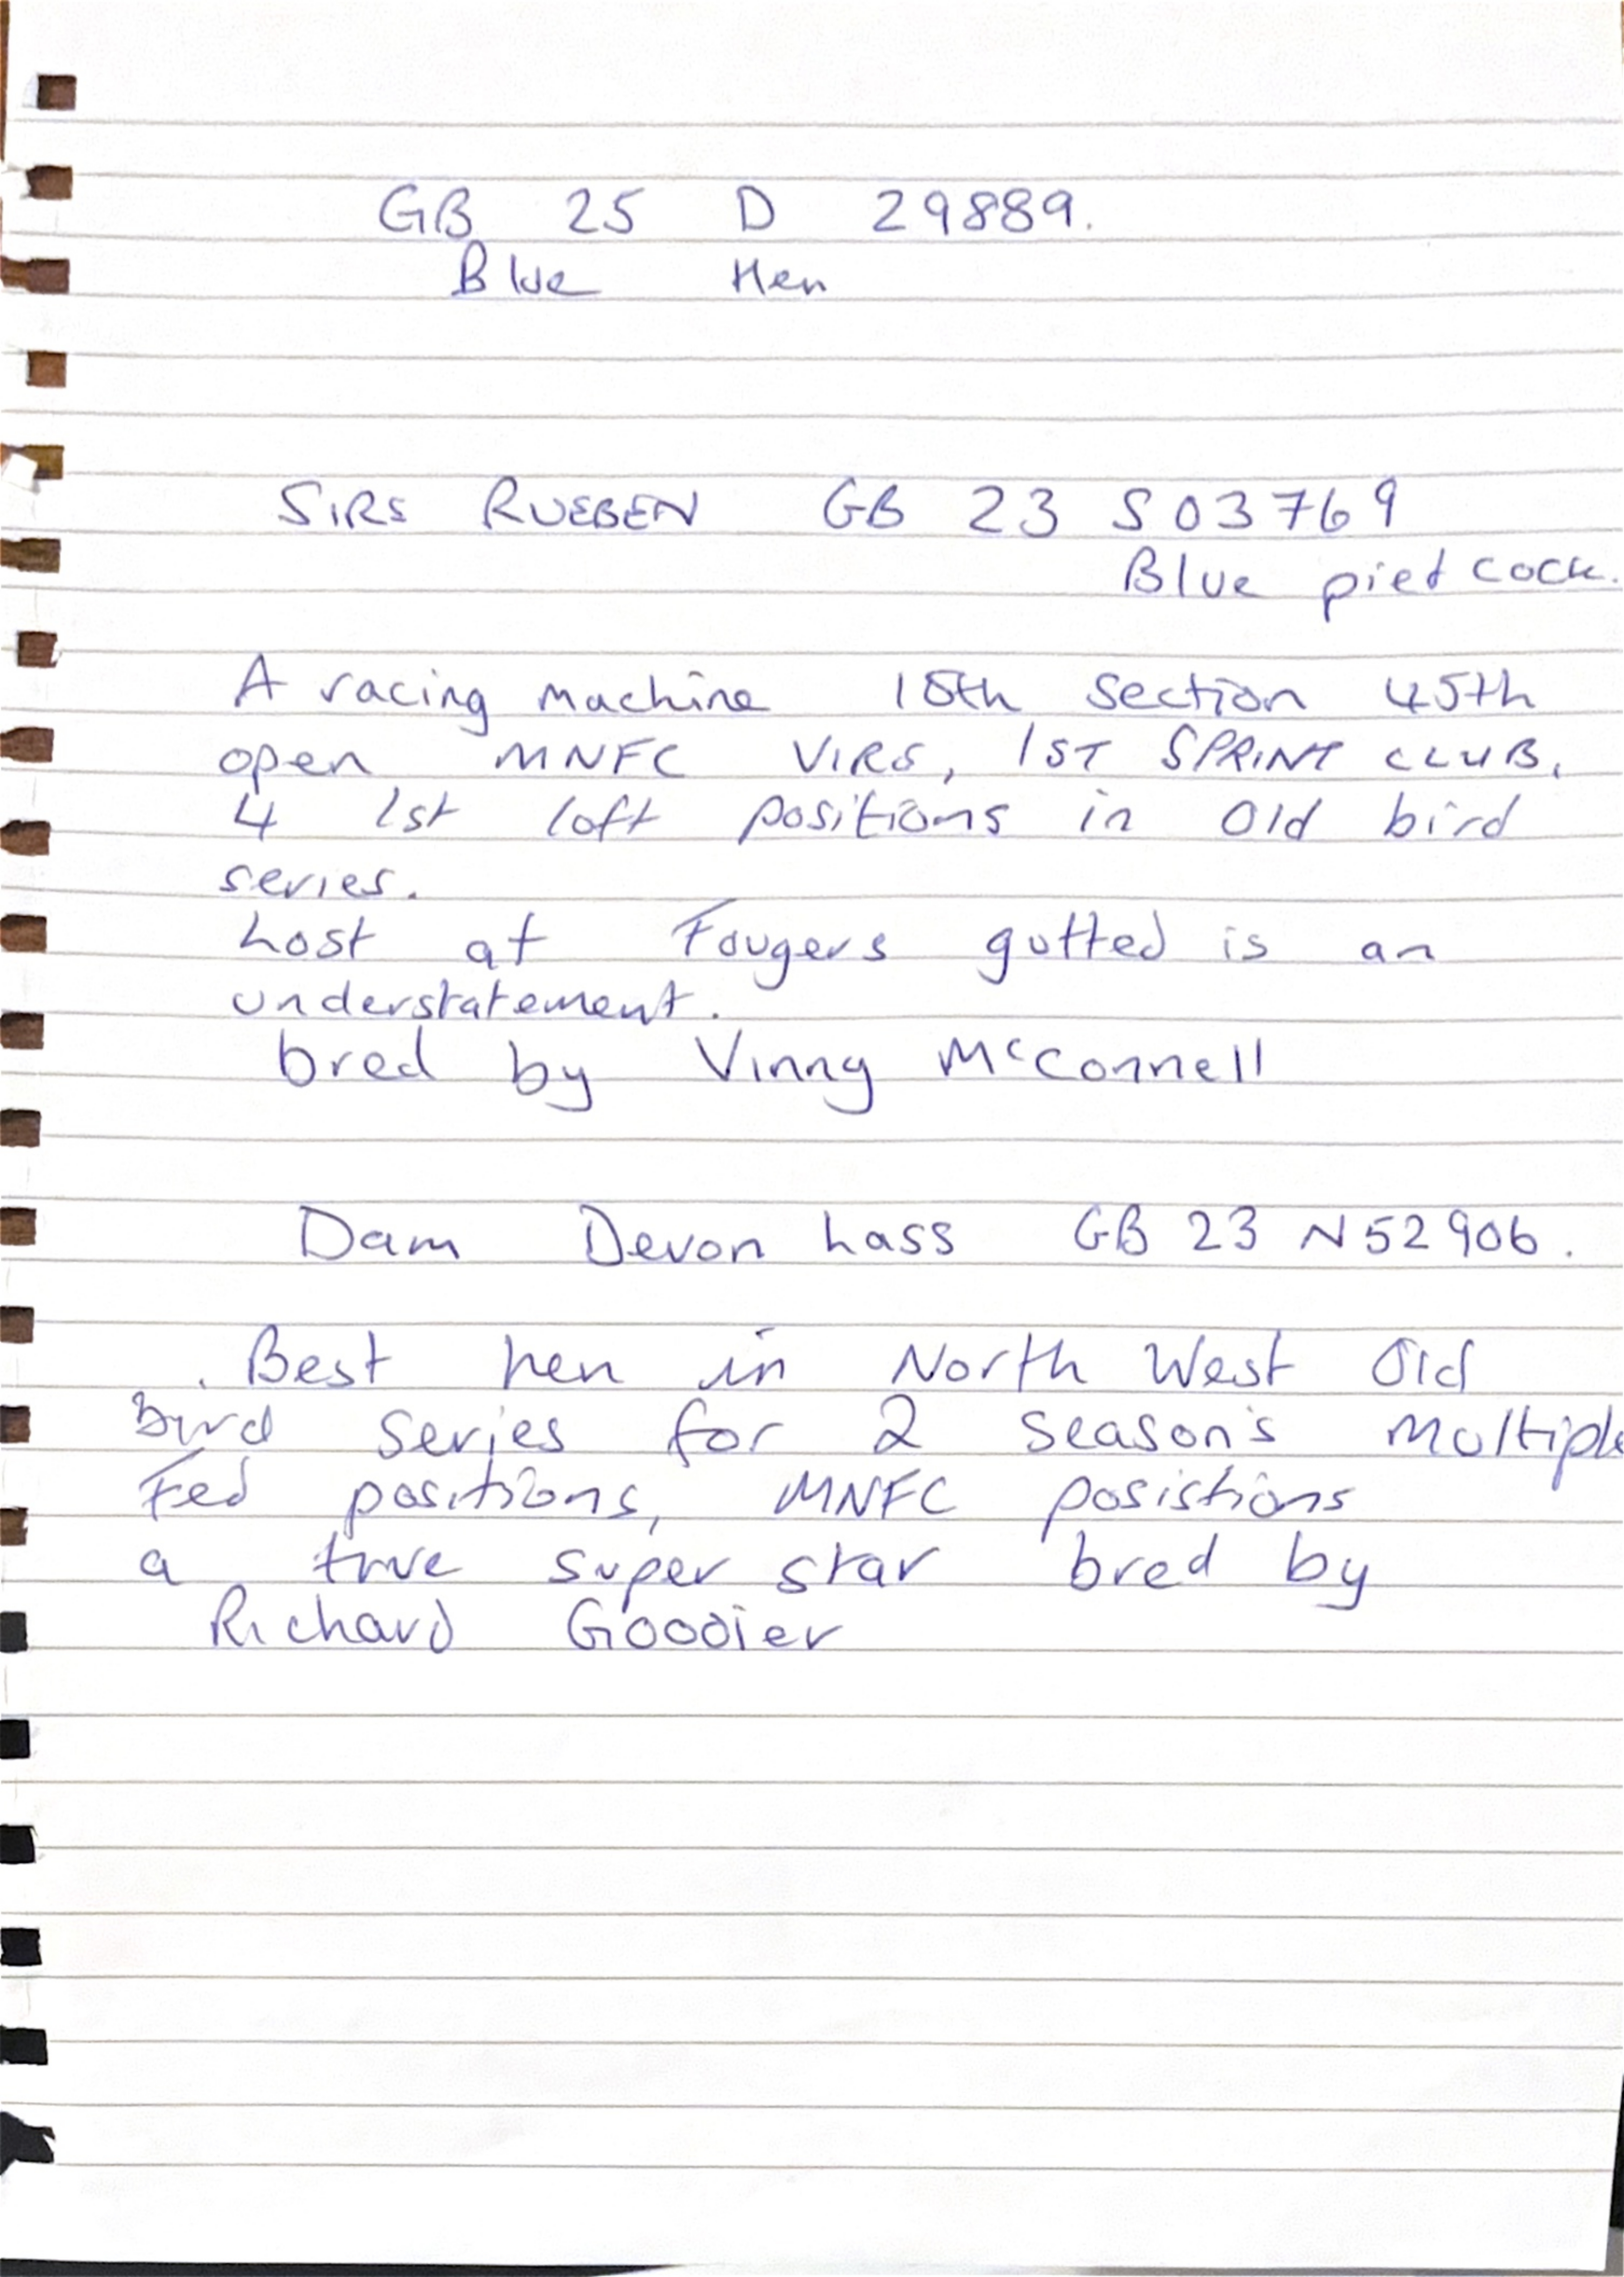 GB 25 D 29889.
Blue Hen
SIRE RUEBEN GB 23 S03769
Blue pied cock.
A racing machine 15th section 45th
open MNFC VIRE, 1ST SPRINT CLUB.
4 1st loft positions in Old bird
series.
Lost at Fougers gutted is an
understatement.
bred by Vinny McConnell
Dam Devon Lass GB 23 N52906.
. Best hen in North West Old
bird series for 2 season's multiple
Fed positions, MNFC posistions
a true super star bred by
Richard Goodier